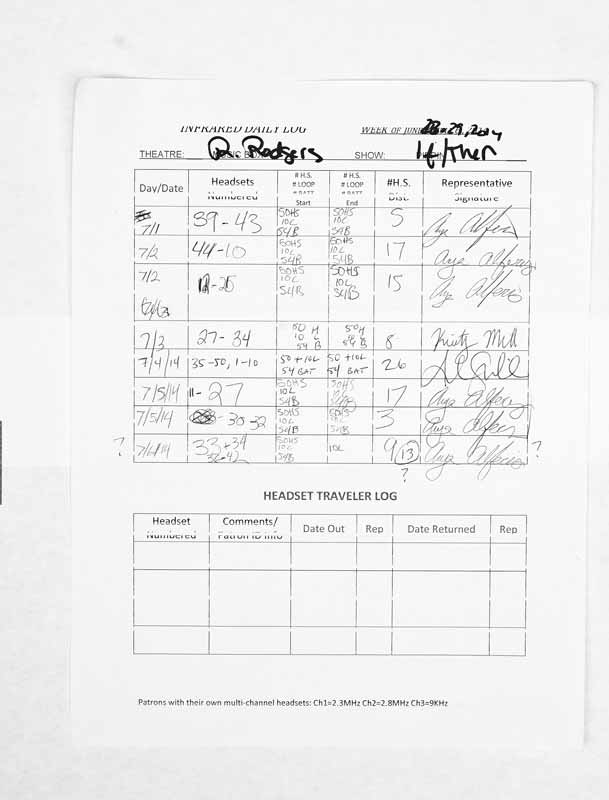 INFRARED DAILY LOG WEEK OF JUNE 28-29, 2014
THEATRE: R Rodgers SHOW: If/Then
Day/Date Headsets Numbered # H.S. # LOOP # BATT Start # H.S. # LOOP # BATT End #H.S. Dist. Representative Signature
7/1 39-43 50HS 10L 54B 50HS 10L 54B 5
7/2 44-10 50HS 10L 54B 50HS 10L 54B 17
7/2 12-25 50HS 10L 54B 50HS 10L 54B 15
7/3 27-34 50 H 10 L 54 B 50H 10 L 54 B 8
7/4/14 35-50, 1-10 50+10L 54 BAT 50+10L 54 BAT 26
7/5/14 11-27 50HS 10L 54B 50HS 10L 54B 17
7/5/14 -30-32 50HS 10L 54B 50HS 10L 54B 3
? 7/6/14 33+34 50HS 10L 54B 10L 9 13 ? ?
HEADSET TRAVELER LOG
Headset Numbered Comments/ Patron ID Info Date Out Rep Date Returned Rep
Patrons with their own multi-channel headsets: Ch1=2.3MHz Ch2=2.8MHz Ch3=9KHz